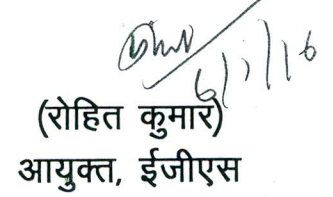 6/7/16
(रोहित कुमार)
आयुक्त, ईजीएस